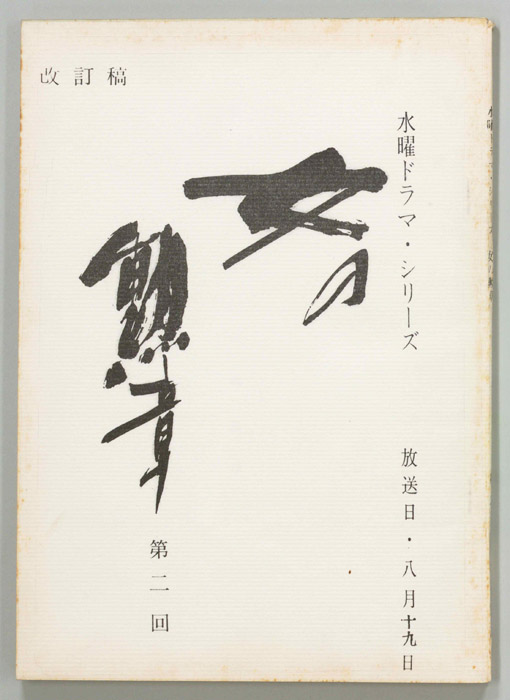 改訂稿
水曜ドラマ・シリーズ
放送日・八月十九日
女の
勲章
第二回